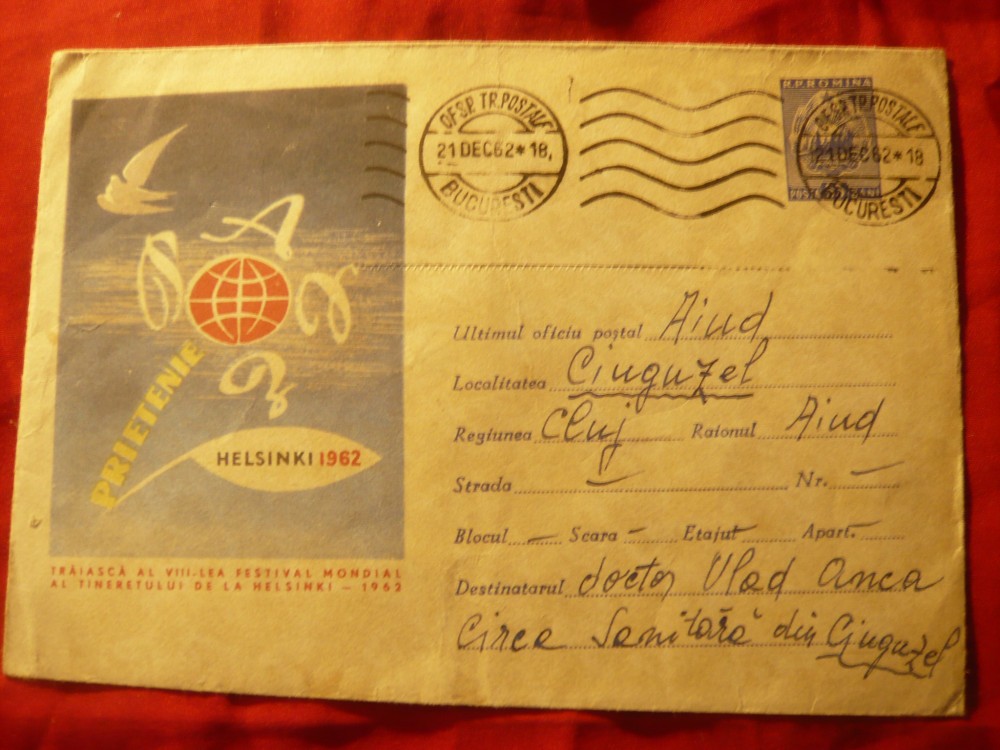 OF.SP. TR. POSTALE
21 DEC 62 * 18,
BUCUREŞTI
R.P. ROMINA
OF.SP. TR. POSTALE
21 DEC 62 * 18
BUCUREŞTI
PRIETENIE
PACE
HELSINKI 1962
TRĂIASCĂ AL VIII-LEA FESTIVAL MONDIAL
AL TINERETULUI DE LA HELSINKI – 1962
Ultimul oficiu poştal Aiud
Localitatea Ciuguzel
Regiunea Cluj Raionul Aiud
Strada – Nr. –
Blocul – Scara – Etajul – Apart. –
Destinatarul doctor Vlad Anca
Circa Sanitară din Ciuguzel